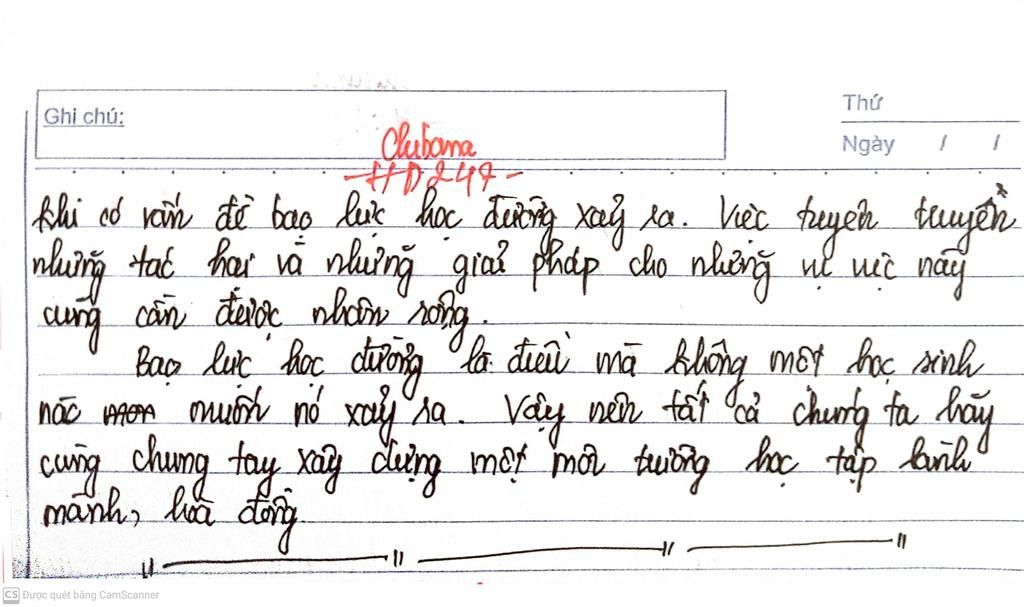 Ghi chú:
Thứ
Ngày / /
Clubama
HD247
khi có vấn đề bạo lực học đường xảy ra. Việc tuyên truyền
những tác hại và những giải pháp cho những vụ việc này
cũng cần được nhân rộng.
Bạo lực học đường là điều mà không một học sinh
nào muốn nó xảy ra. Vậy nên tất cả chúng ta hãy
cùng chung tay xây dựng một môi trường học tập lành
mạnh, hoà đồng.
CS Được quét bằng CamScanner